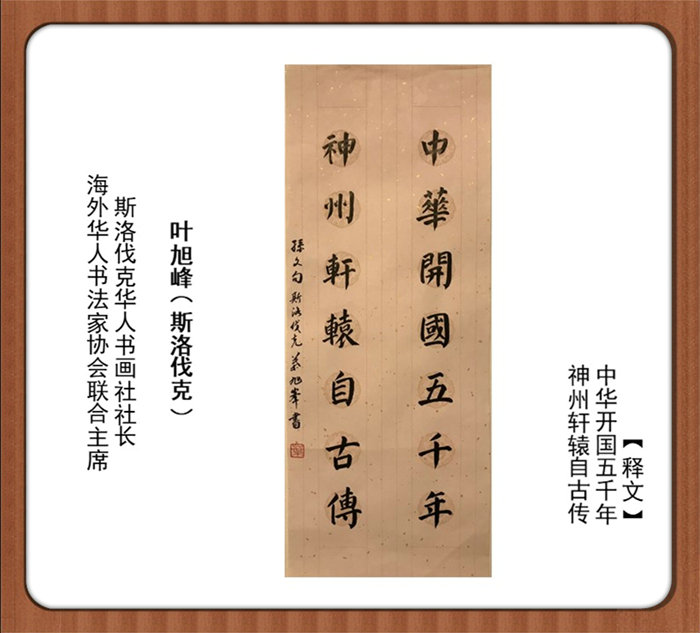 【释文】
中华开国五千年
神州轩辕自古传
中華開國五千年
神州軒轅自古傳
孫文句 斯洛伐克 葉旭峯書
叶旭峰（斯洛伐克）
斯洛伐克华人书画社社长
海外华人书法家协会联合主席